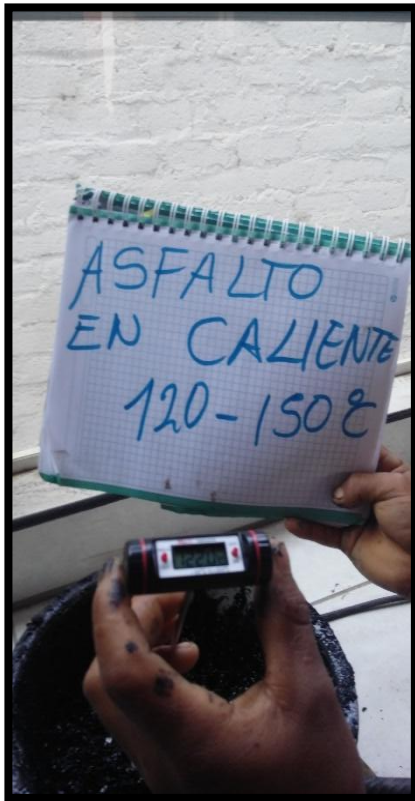 ASFALTO
EN CALIENTE
120-150°C